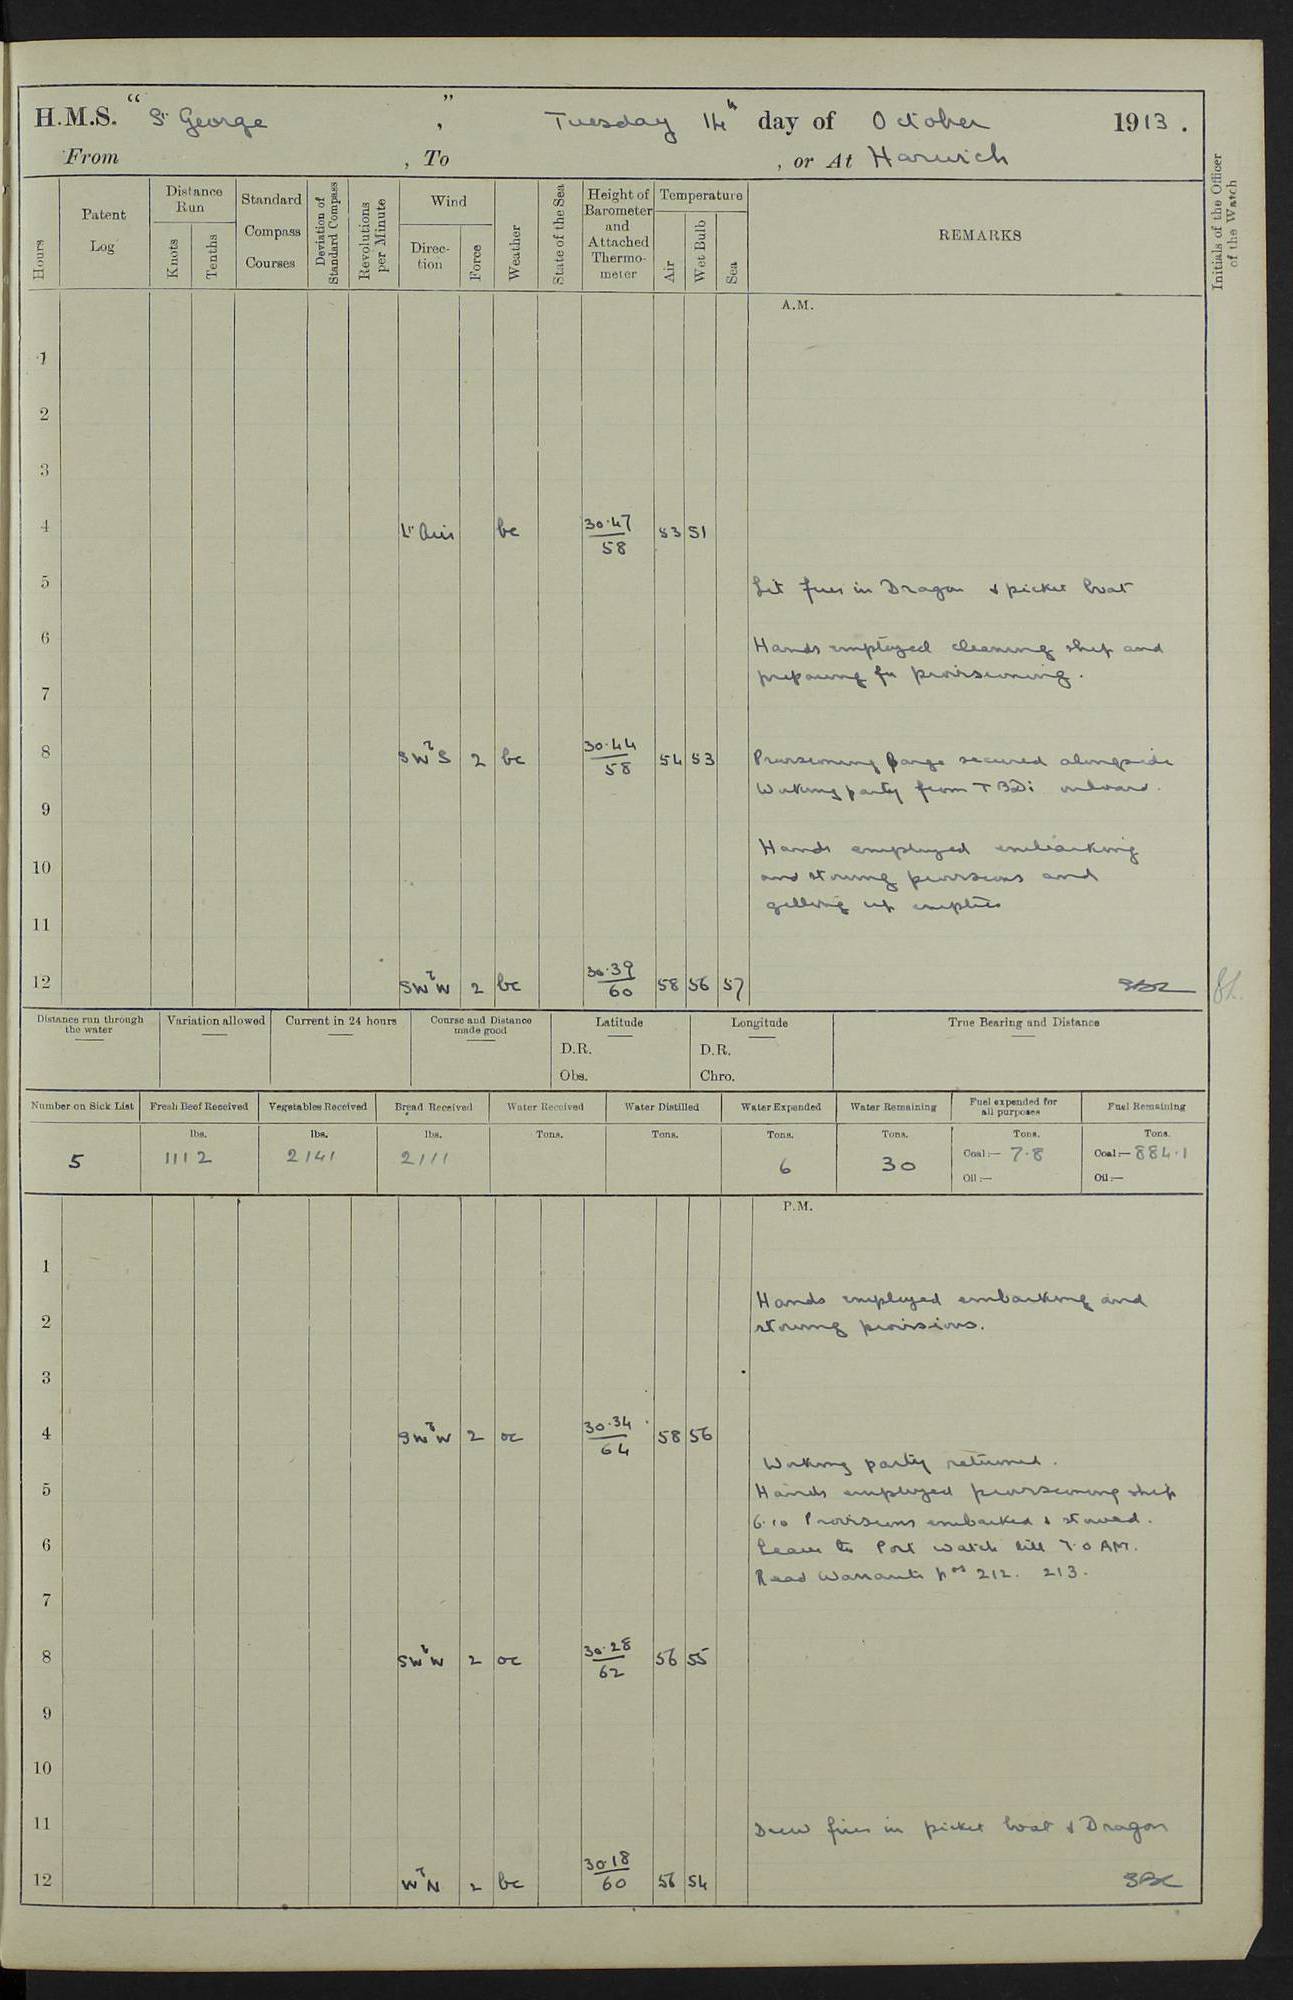 H.M.S. “ St George ” , Tuesday 14th day of October 1913.
From , To , or At Harwich
Hours
Patent Log
Distance Run
Knots
Tenths
Standard Compass Courses
Deviation of Standard Compass
Revolutions per Minute
Wind
Direction
Force
Weather
State of the Sea
Height of Barometer and Attached Thermometer
Temperature
Air
Wet Bulb
Sea
REMARKS
Initials of the Officer of the Watch
A.M.
1
2
3
4 Lt Airs bc 30.47/58 53 51
5 Lit fires in Dragon & picket boat
6 Hands employed cleaning ship and
preparing for provisioning.
7
8 SWbS 2 bc 30.44/58 54 53 Provisioning barge secured alongside
Working party from TBDs onboard.
9
10 Hands employed embarking
and stowing provisions and
getting up empties
11
12 SWbW 2 bc 30.39/60 58 56 57
Distance run through the water
Variation allowed
Current in 24 hours
Course and Distance made good
Latitude
D.R.
Obs.
Longitude
D.R.
Chro.
True Bearing and Distance
Number on Sick List
Fresh Beef Received
Vegetables Received
Bread Received
Water Received
Water Distilled
Water Expended
Water Remaining
Fuel expended for all purposes
Fuel Remaining
lbs. lbs. lbs. Tons. Tons. Tons. Tons. Tons. Tons.
5 1112 2141 2111 6 30 Coal:— 7.8 Coal:— 884.1
Oil:— Oil:—
P.M.
1
Hands employed embarking and
2 stowing provisions.
3
4 SWbW 2 oc 30.34/64 58 56
Working party returned.
5 Hands employed provisioning ship
6.10 Provisions embarked & stowed.
6 Leave to Port watch till 7.0 AM.
Read Warrants nos 212. 213.
7
8 SWbW 2 oc 30.28/62 56 55
9
10
11 Drew fires in picket boat & Dragon
12 WbN 2 bc 30.18/60 56 54